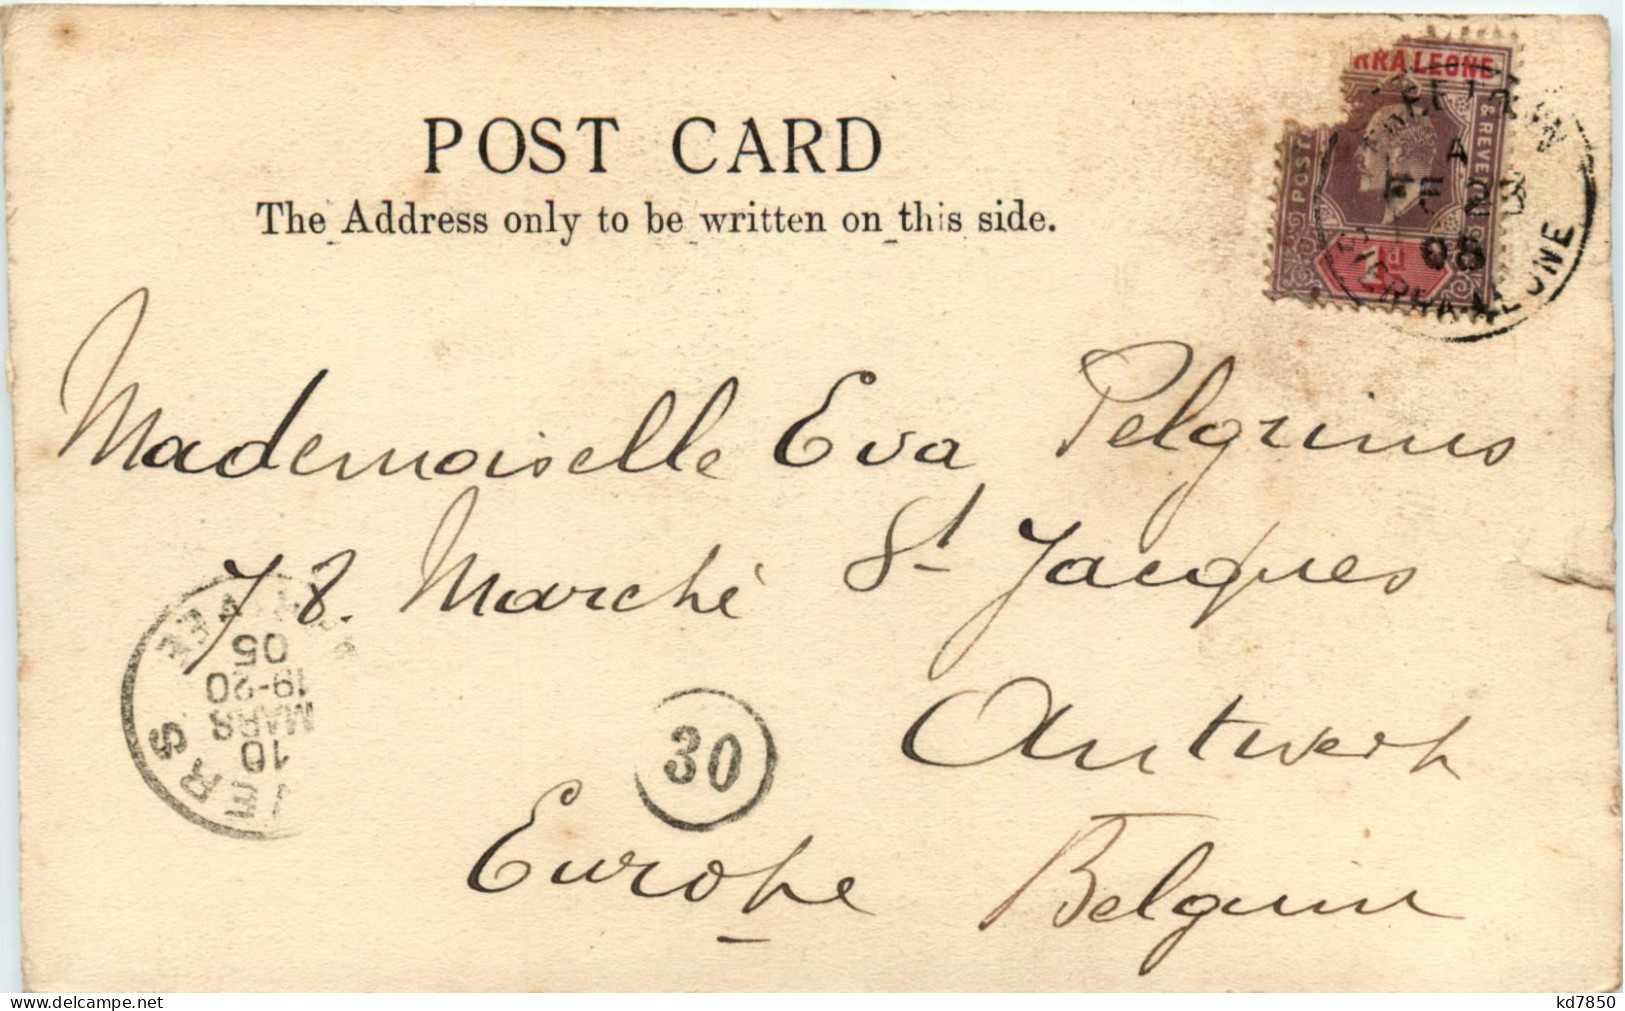 POST CARD
The Address only to be written on this side.
RRA LEONE
POST
& REVE
1d
A
FE 28
05
SIERRA LEONE
Mademoiselle Eva Pelgrims
78. Marché St Jacques
Antwerp
Europe Belgium
30
10
MARS
19-20
05
kd7850